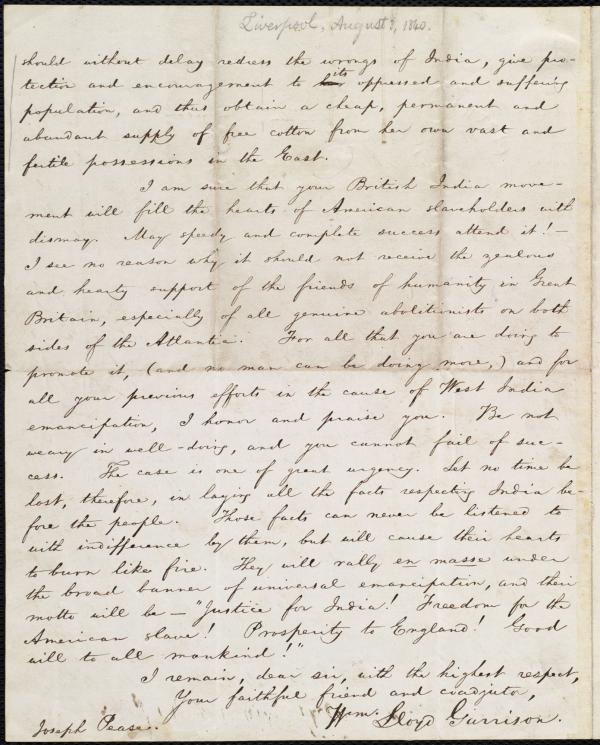 Liverpool, August 3, 1840.
should without delay redress the wrongs of India, give pro-
tection and encouragement to its oppressed and suffering
population, and thus obtain a cheap, permanent and
abundant supply of free cotton from her own vast and
fertile possessions in the East.
I am sure that your British India move-
ment will fill the hearts of American slaveholders with
dismay. May speedy and complete success attend it! —
I see no reason why it should not receive the zealous
and hearty support of the friends of humanity in Great
Britain, especially of all genuine abolitionists on both
sides of the Atlantic. For all that you are doing to
promote it, (and no man can be doing more,) and for
all your previous efforts in the cause of West India
emancipation, I honor and praise you. Be not
weary in well-doing, and you cannot fail of suc-
cess. The case is one of great urgency. Let no time be
lost, therefore, in laying all the facts respecting India be-
fore the people. Those facts can never be listened to
with indifference by them, but will cause their hearts
to burn like fire. They will rally en masse under
the broad banner of universal emancipation, and their
motto will be — "Justice for India! Freedom for the
American slave! Prosperity to England! Good
will to all mankind!"
I remain, dear sir, with the highest respect,
Your faithful friend and coadjutor,
Wm. Lloyd Garrison.
Joseph Pease.